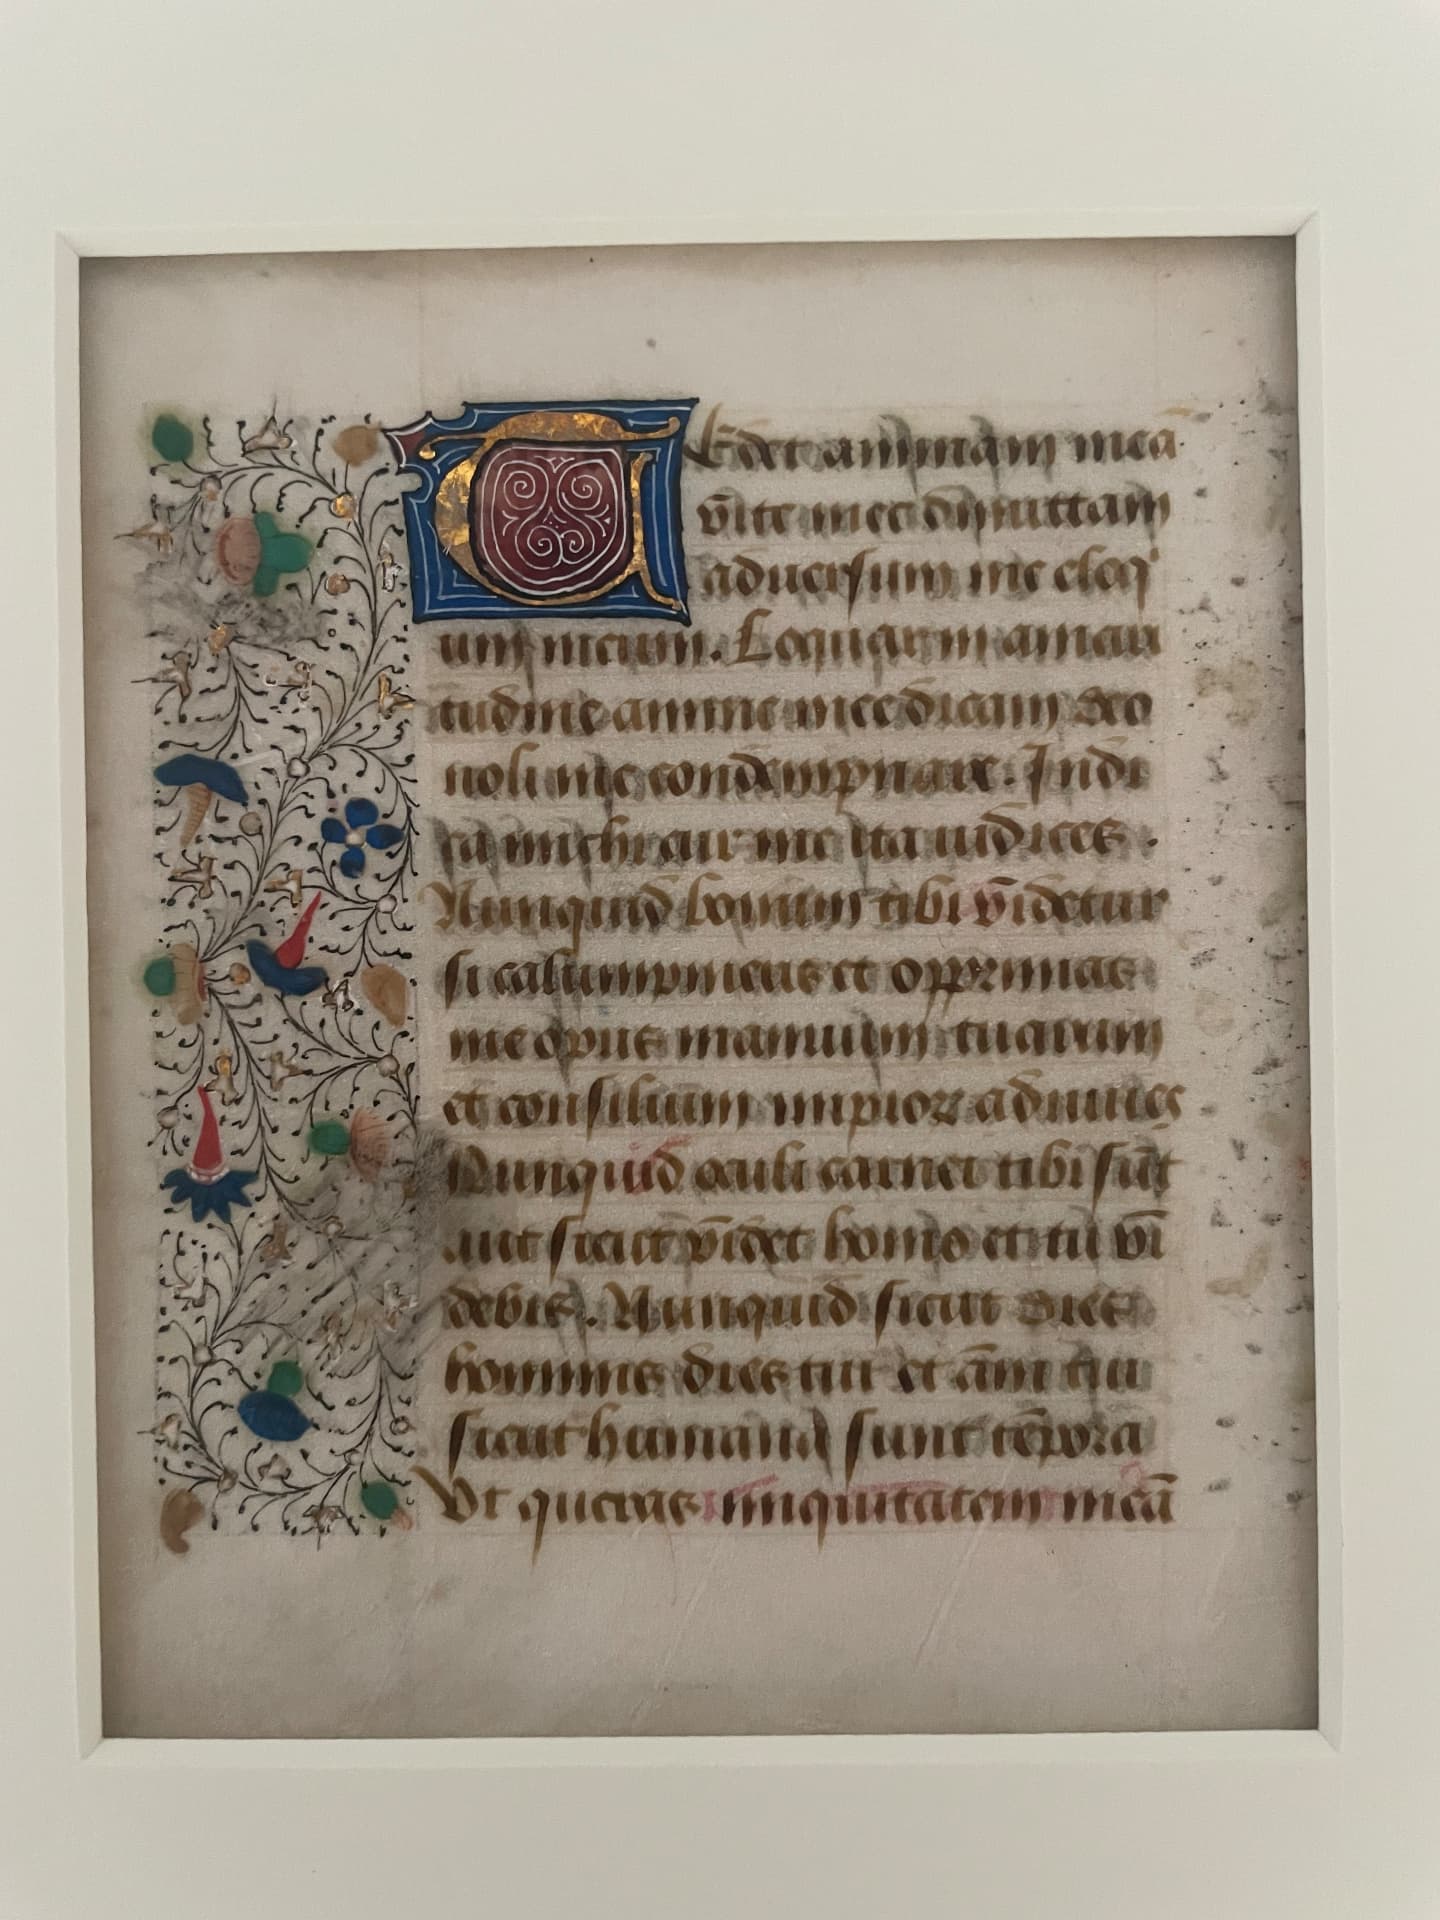 Tedet animam meā
vite mee dimittam
adversum me eloq
uium meum. Loquar in amari
tudine anime mee dicam deo
noli me condempnare. Indi
ca michi cur me ita iudices.
Nunquid bonum tibi videtur
si calumpnieris et opprimas
me opus manuum tuarum
et consilium impiorum adiuves
Nunquid oculi carnei tibi sūt
aut sicut videt homo et tu vi
debis. Nunquid sicut dies
hominis dies tui et āni tui
sicut humana sunt tēpora
Vt queras iniquitatem meā